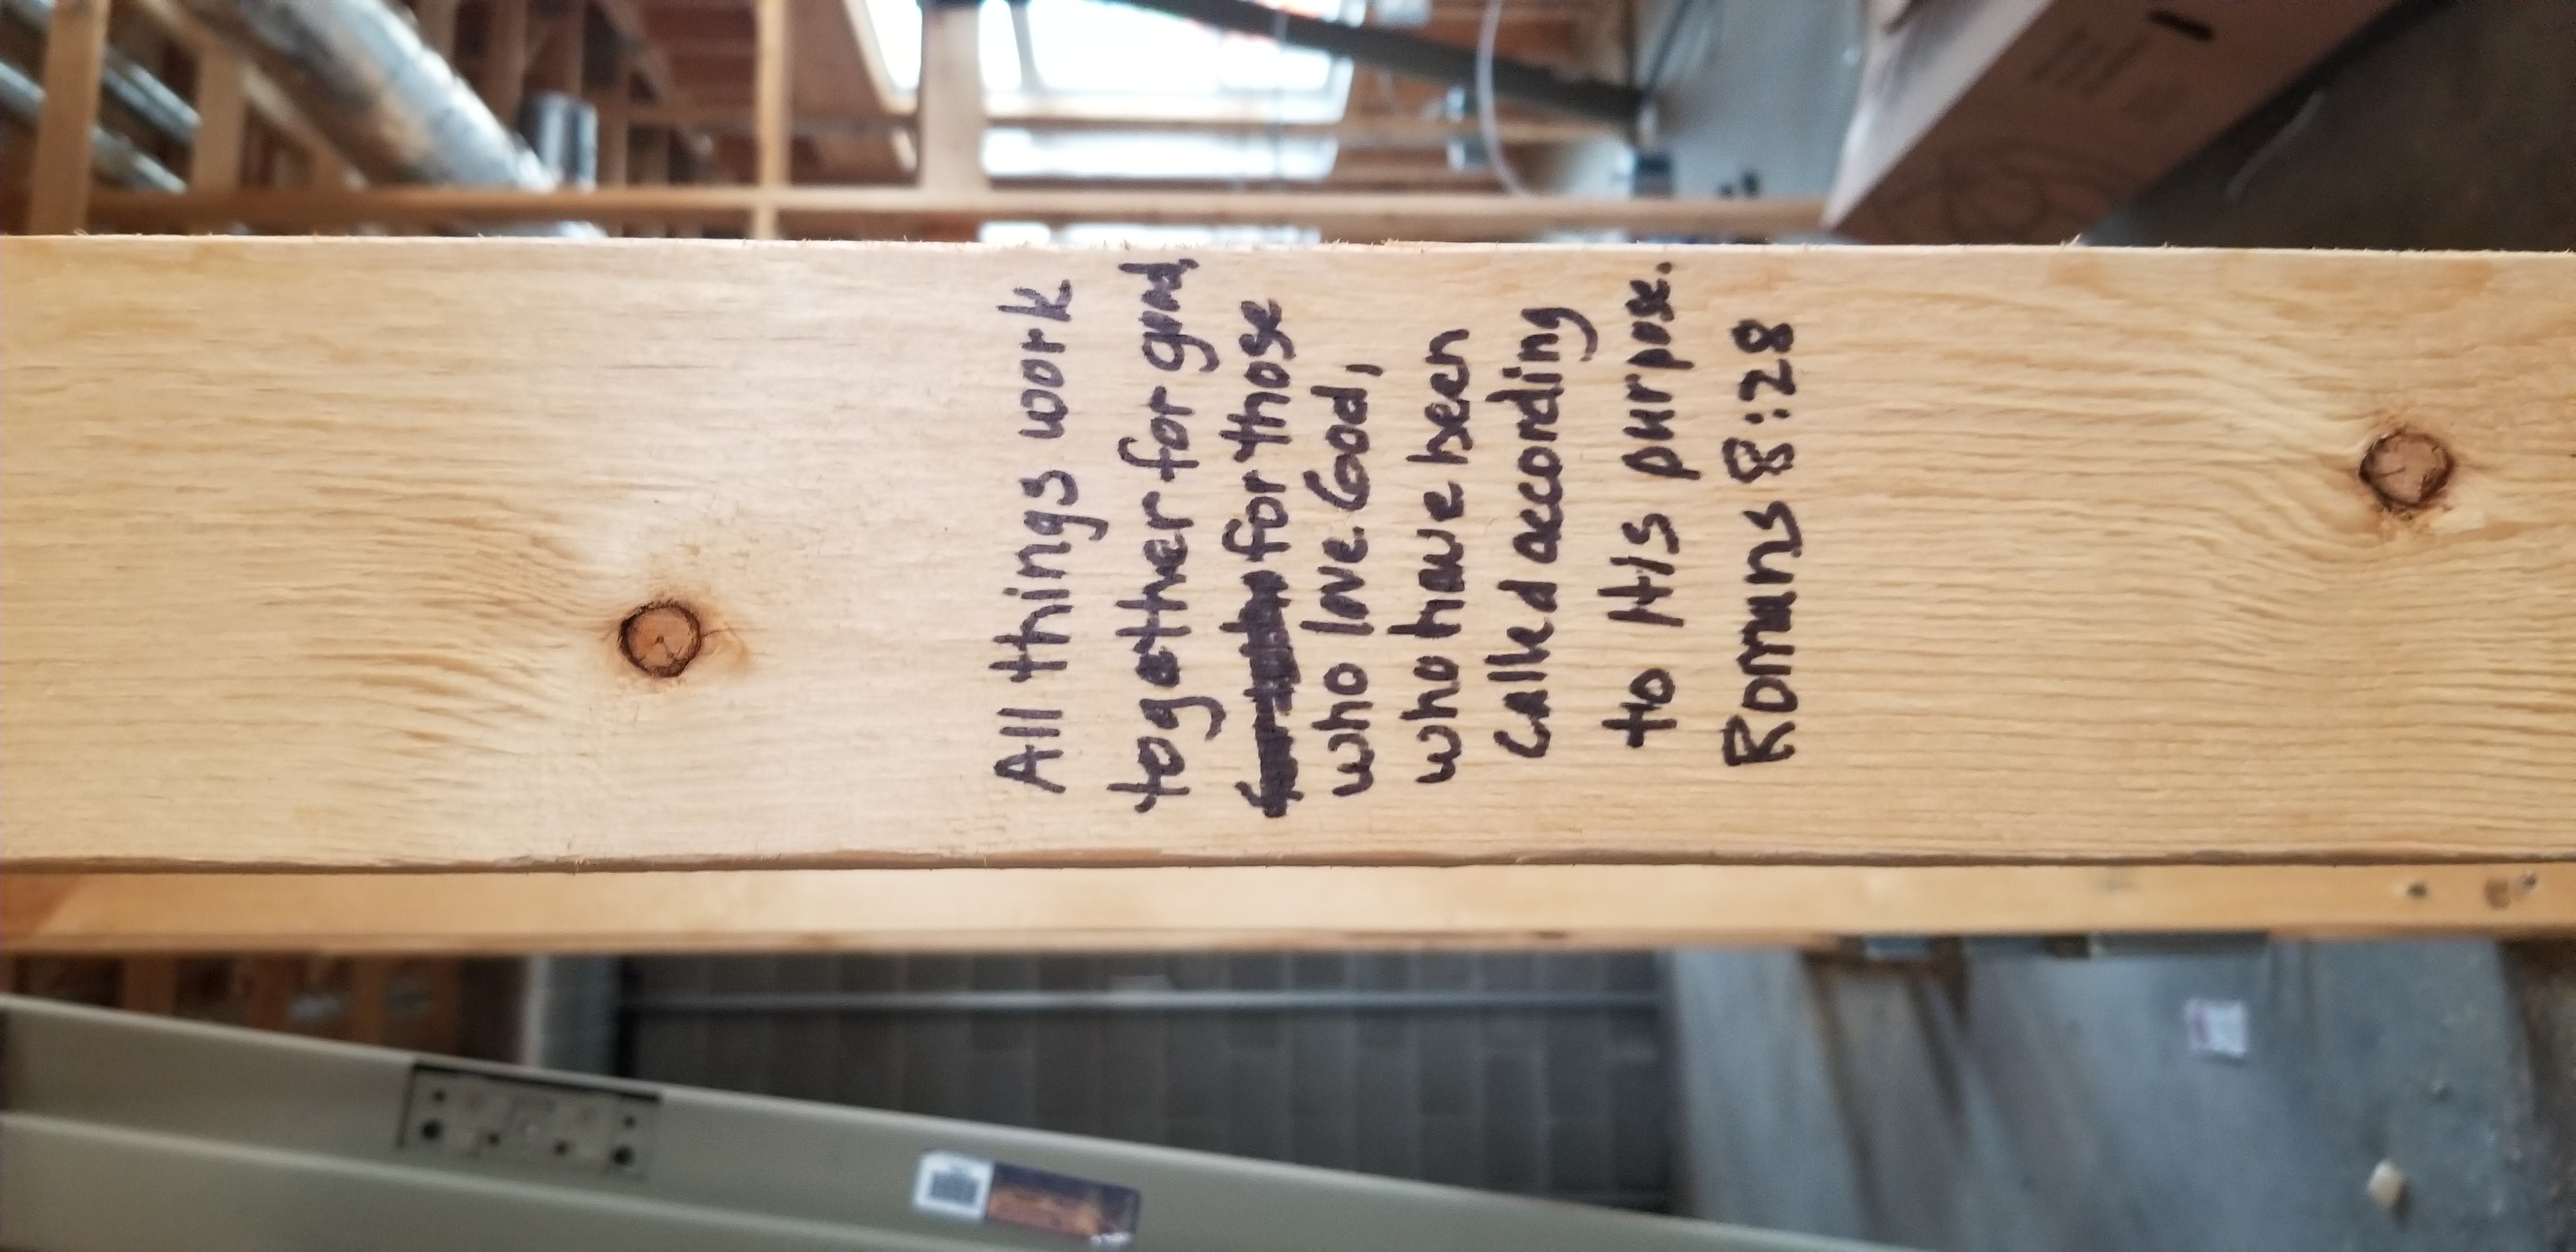 All things work
together for good,
for those
who love God,
who have been
called according
to His purpose.
Romans 8:28